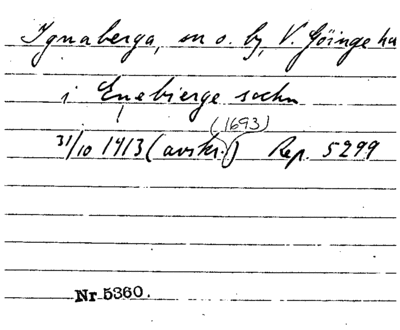 Ignaberga, sn o. by, V. Göinge hd
i Enebierge sochn
(1693)
31/10 1413 (avskr.) Rep. 5299
Nr 5360.